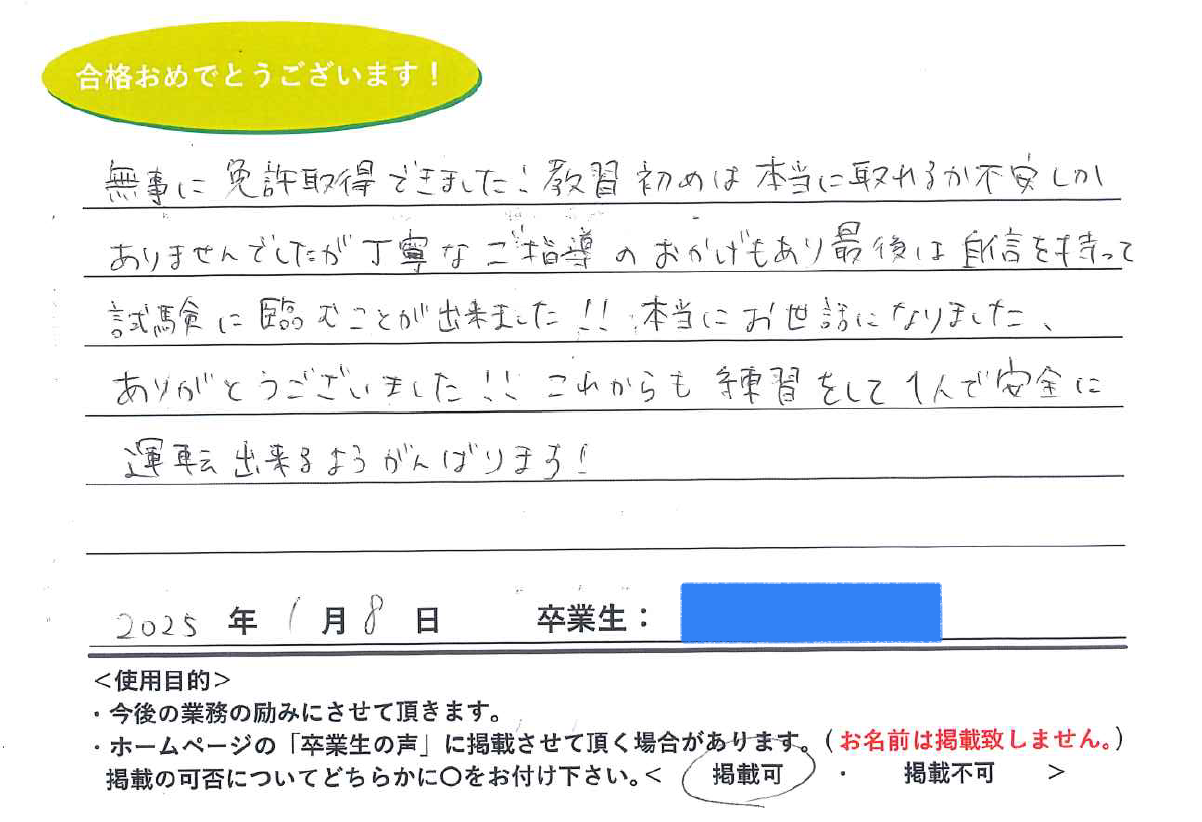 合格おめでとうございます！
無事に免許取得できました！教習初めは本当に取れるか不安しか
ありませんでしたが丁寧なご指導のおかげもあり最後は自信を持って
試験に臨むことが出来ました！！本当にお世話になりました、
ありがとうございました！！これからも練習をして1人で安全に
運転出来るようがんばります！
2025年1月8日 卒業生：
＜使用目的＞
・今後の業務の励みにさせて頂きます。
・ホームページの「卒業生の声」に掲載させて頂く場合があります。（お名前は掲載致しません。）
掲載の可否についてどちらかに〇をお付け下さい。＜ 掲載可 ・ 掲載不可 ＞